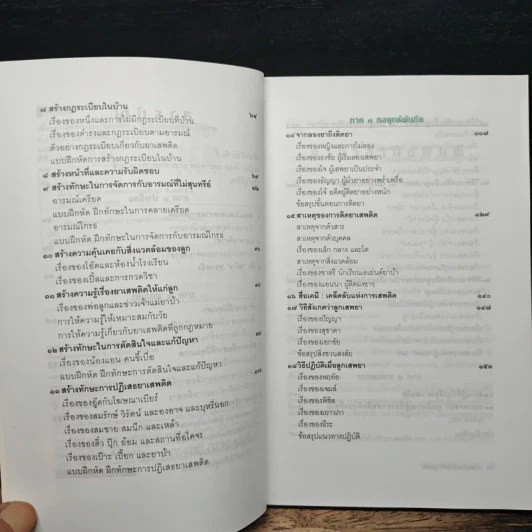 ๗ สร้างกฎระเบียบในบ้าน ๖๔
เรื่องของหนึ่งและการไม่มีกฎระเบียบที่บ้าน
เรื่องของดำรงและกฎระเบียบตามอารมณ์
ตัวอย่างกฎระเบียบเกี่ยวกับยาเสพติด
แบบฝึกหัดการสร้างกฎระเบียบในบ้าน
๘ สร้างหน้าที่และความรับผิดชอบ
๙ สร้างทักษะในการจัดการกับอารมณ์ที่ไม่สุนทรีย์
อารมณ์เครียด
แบบฝึกหัด ฝึกทักษะในการคลายเครียด
อารมณ์โกรธ
แบบฝึกหัด ฝึกทักษะในการจัดการกับอารมณ์โกรธ
๑๐ สร้างความคุ้นเคยกับสิ่งแวดล้อมของลูก
เรื่องของโอ๊ตและห้องน้ำโรงเรียน
เรื่องของเปิ้ลและการกวดวิชา
๑๑ สร้างความรู้เรื่องยาเสพติดให้แก่ลูก
เรื่องของพ่อลูกและข่าวเจ้าแม่ยาบ้า
การให้ความรู้ให้เหมาะสมกับวัย
การให้ความรู้เกี่ยวกับยาเสพติดที่ถูกกฎหมาย
๑๒ สร้างทักษะในการตัดสินใจและแก้ปัญหา
เรื่องของน้องแอน คนขี้เบื่อ
แบบฝึกหัด ฝึกทักษะในการตัดสินใจและแก้ปัญหา
๑๓ สร้างทักษะการปฏิเสธยาเสพติด
เรื่องของยู้ดกับโฆษณาเบียร์
เรื่องของสมรักษ์ วิรัตน์ และองอาจ และบุหรี่นอก
เรื่องของสมชาย สมนึก และเหล้า
เรื่องของติ๋ว ปุ๊ก อ้อม และสถานที่อโคจร
เรื่องของเป๊าะ เปี๊ยก และยาบ้า
แบบฝึกหัด ฝึกทักษะการปฏิเสธยาเสพติด
ภาค ๓ กลยุทธ์พ้นภัย
๑๔ จากลองยาถึงติดยา ๑๑๗
เรื่องของหญิงและการไม่ลอง
เรื่องของธงชัย ผู้เริ่มลองเสพยา
เรื่องของโจ ผู้เสพยาเป็นประจำ
เรื่องของธัญญา ผู้มัวยาอย่างพร่ำเพรื่อ
เรื่องของโจ้ อดีตผู้ติดยาอย่างหนัก
ข้อสรุปขั้นตอนการติดยา
๑๕ สาเหตุของการติดยาเสพติด ๑๒๙
สาเหตุจากตัวสาร
สาเหตุจากตัวบุคคล
เรื่องของเล็ก กลาง และโต
สาเหตุจากสิ่งแวดล้อม
เรื่องของชาตรี นักเรียนเอเย่นต์ยาบ้า
เรื่องของแอนนา ผู้ติดผงขาว
๑๖ สื่อเคมี : เคล็ดลับแห่งการเสพติด ๑๔๐
๑๗ วิธีสังเกตว่าลูกเสพยา ๑๔๗
เรื่องของปัญญา
เรื่องของสุชาดา
เรื่องของเอกชัย
ข้อสรุปสิ่งชวนสงสัย
๑๘ วิธีปฏิบัติเมื่อลูกเสพยา ๑๕๑
เรื่องของหฤทัย
เรื่องของเจมส์
เรื่องของพิชิต
เรื่องของเยาวภา
เรื่องของธีระ
ข้อสรุปแนวทางปฏิบัติ